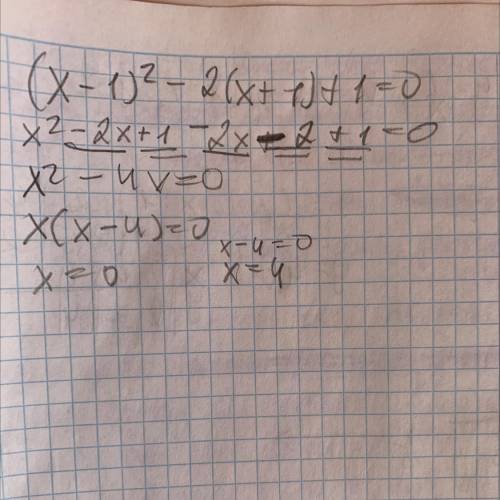 (x-1)² - 2(x+1)+1=0
x² - 2x+1 - 2x - 2 + 1=0
x² - 4x=0
x(x-4)=0
x-4=0
x=0 x=4